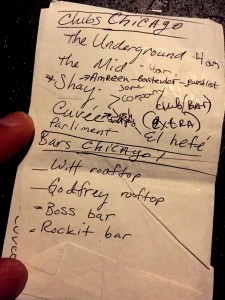 Clubs CHICAGO
the Underground - 4am
the Mid - 4am.
* Shay - Amreen - bartender - guestlist
Cuvée
Club (BAR)
EXTRA
Parliment
El hefé
Bars CHICAGO!
- Witt rooftop
- Godfrey rooftop
- Boss bar
- Rockit bar